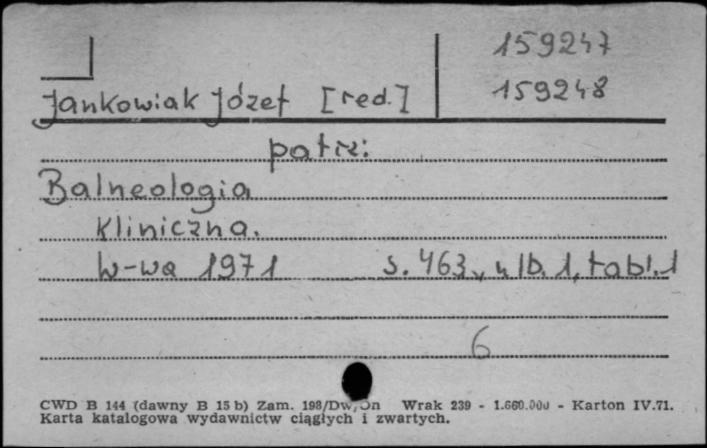 159247
159248
Jankowiak Józef [red.]
patrz:
Balneologia
kliniczna.
W-wa 1971 s. 463, nlb. 1, tabl. 1
6
CWD B 144 (dawny B 15 b) Zam. 198/Dw/Jn Wrak 239 - 1.660.000 - Karton IV.71.
Karta katalogowa wydawnictw ciągłych i zwartych.